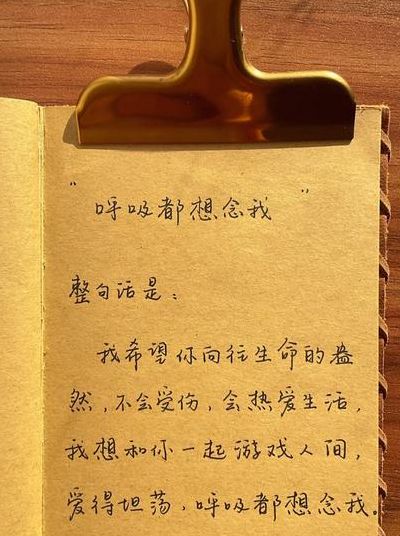 "呼吸都想念我"
整句话是：
我希望你向往生命的盎
然，不会受伤，会热爱生活，
我想和你一起游戏人间，
爱得坦荡，呼吸都想念我。